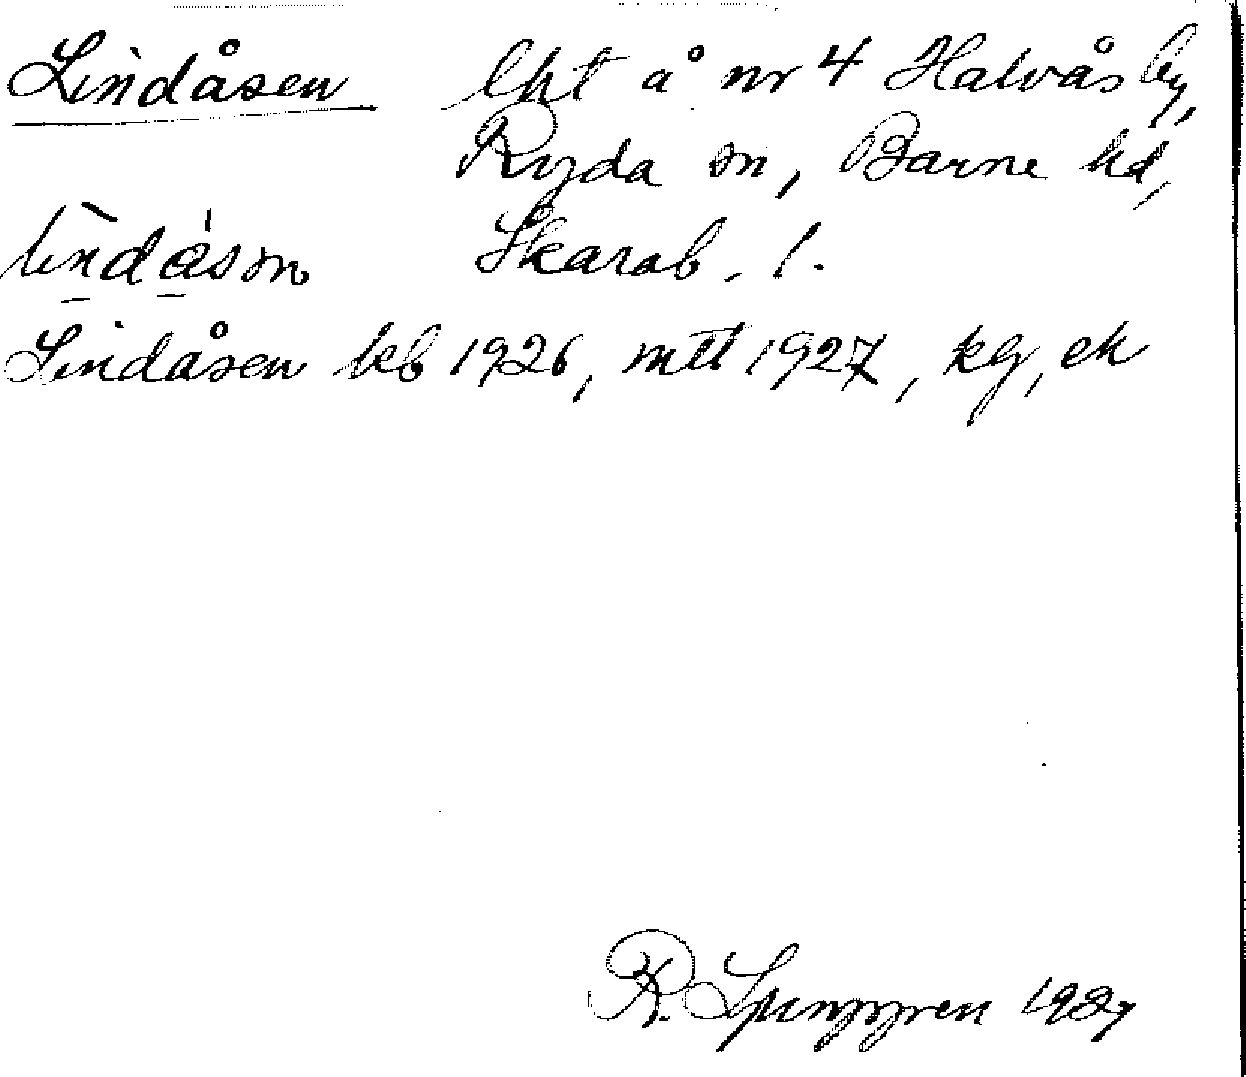 Lindåsen lht å nr 4 Halvås by,
Ryda sn, Barne hd,
lìndǻsm Skarab. l.
Lindåsen kb 1926, mtl 1927, kg, ek
R. Ljunggren 1927